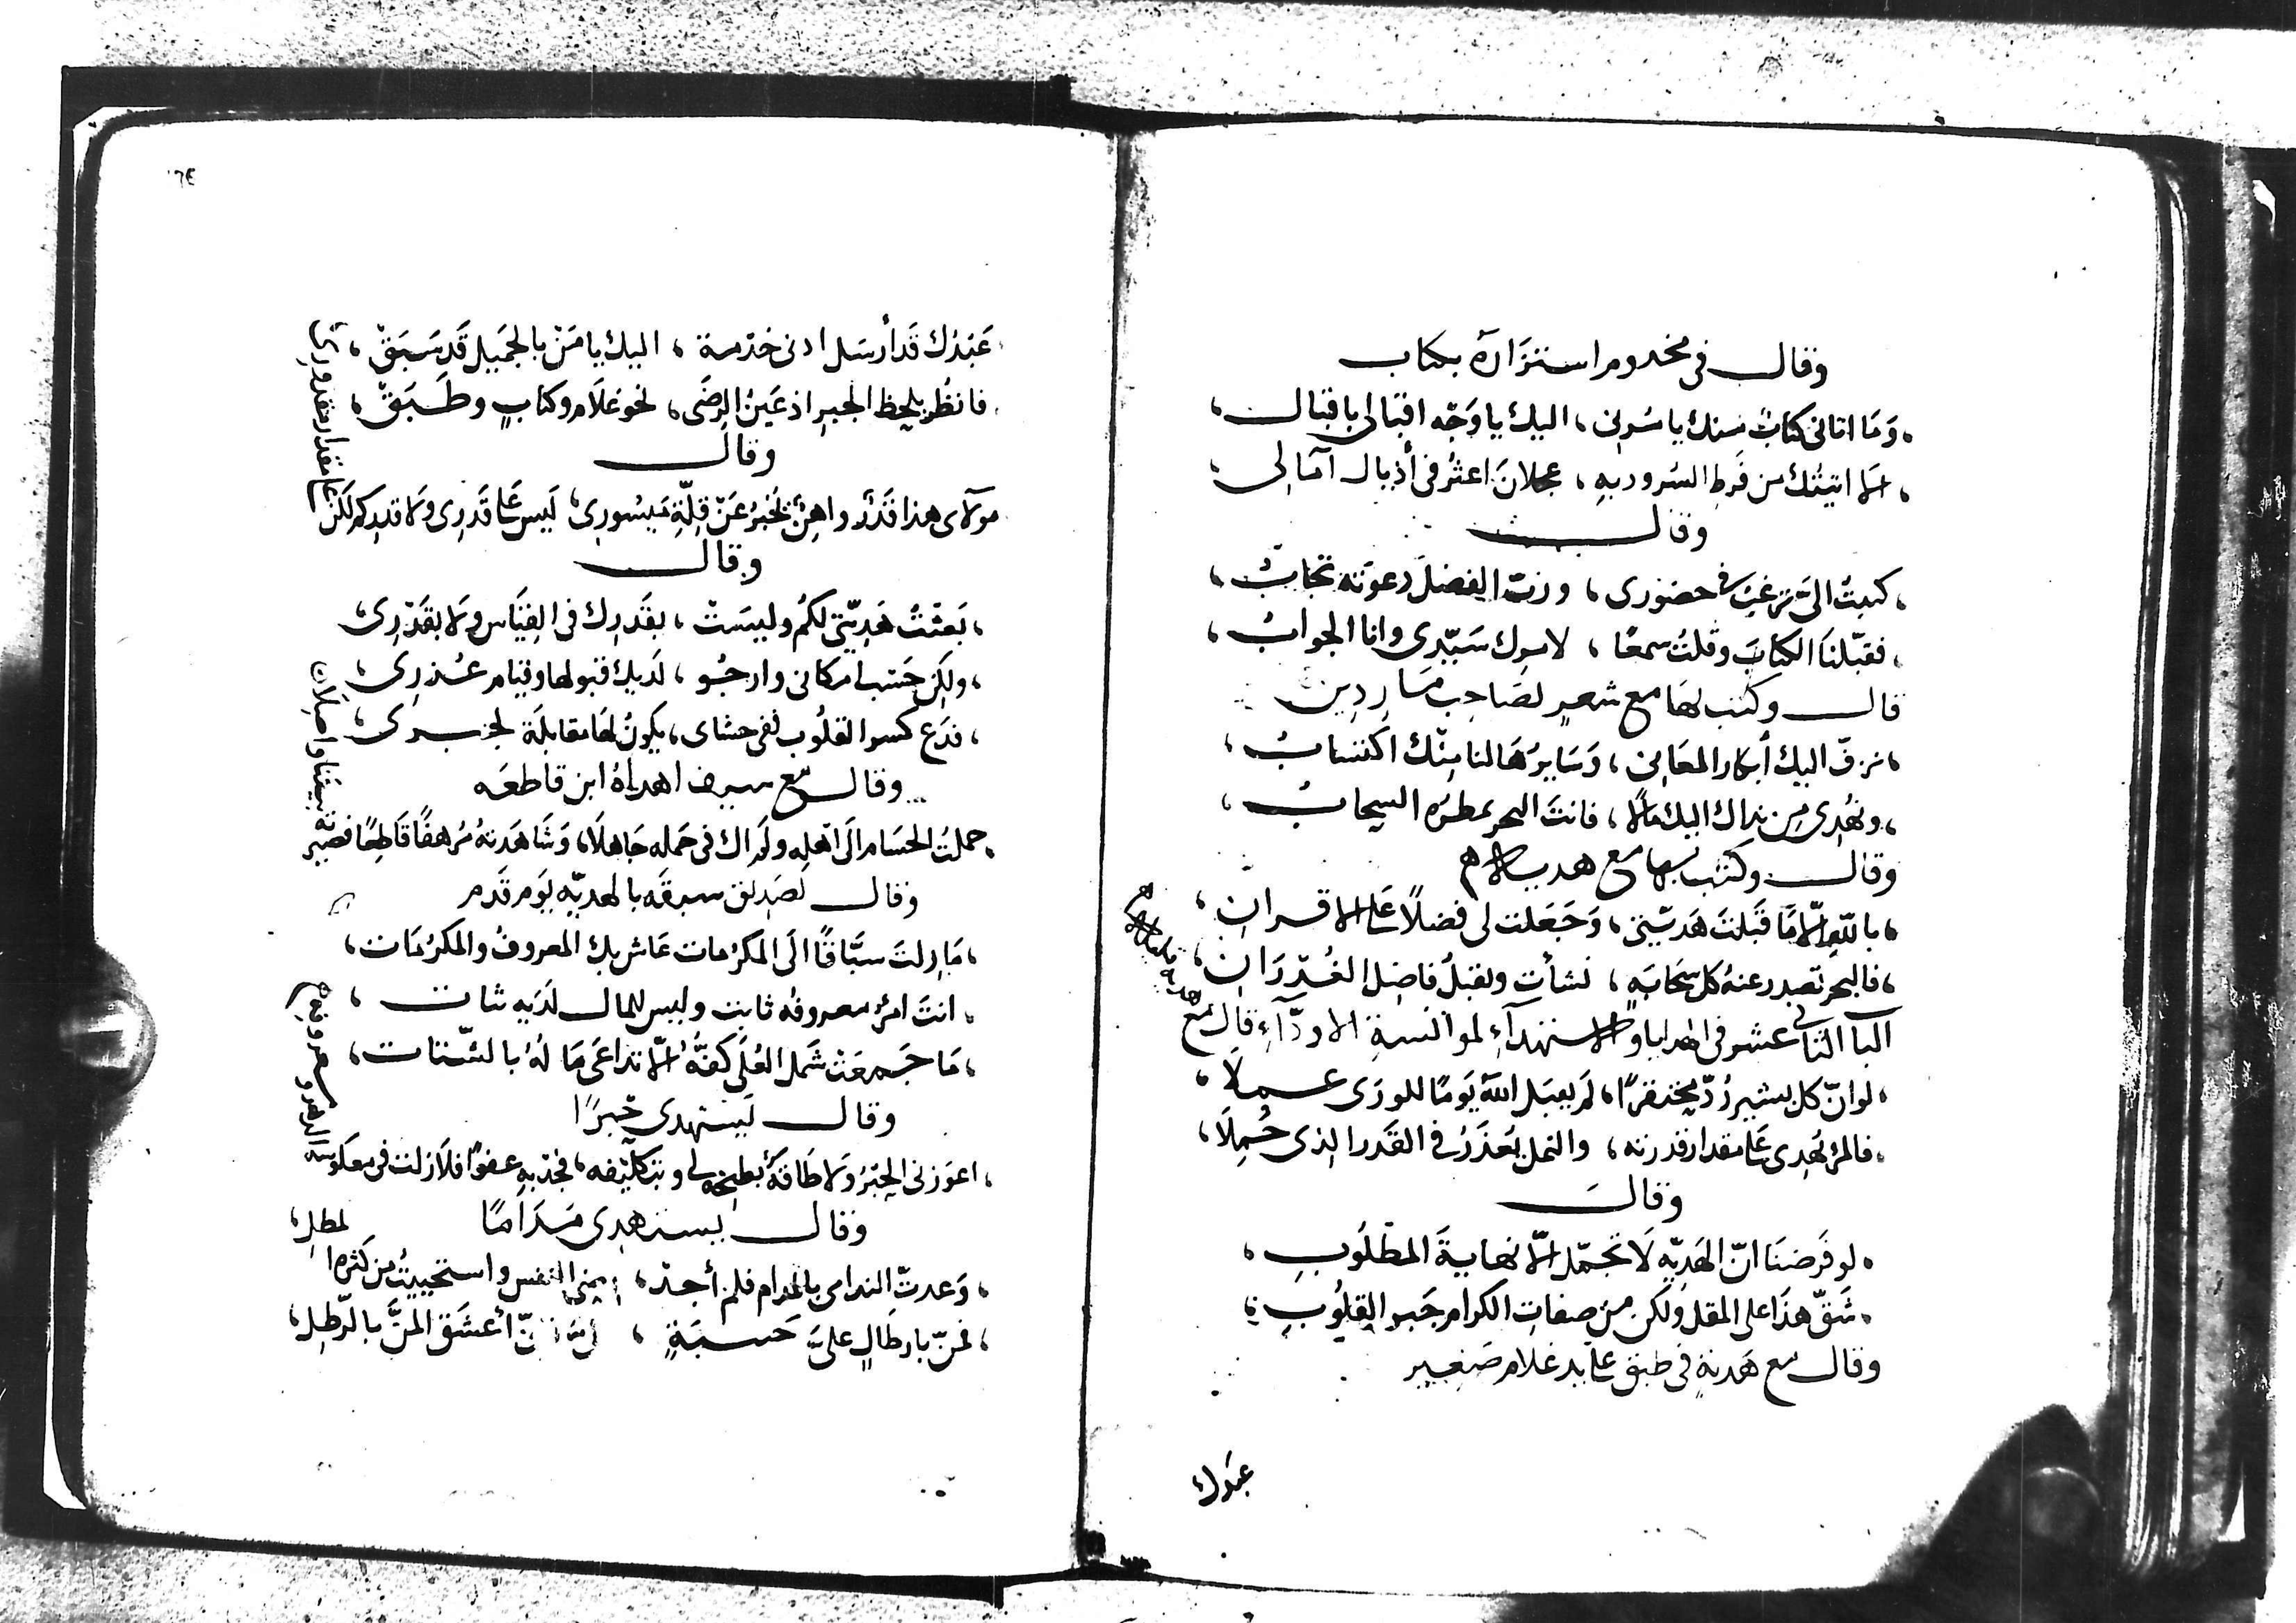 وقال في مخدوم استزاره بكتاب
وَمَا اتاني كتابٌ منك يا سُولى، اليك يا وَجّه اقبالى باقبال،
الا اتيتُك من فَرطِ السُرور به، عجلانَ اعثُر فى أذيال آمالى
وقال
كتبتَ الىَّ ترغبُ في حضورى، وربّ الفضلِ دعوته تجابُ،
فقبّلنَا الكتابَ وقلتُ سمعًا، لامرك سَيّدى وانا الجوابُ،
قال وكتب لها مع شعرٍ لصَاحِب مَاردِين
نزفّ اليك أبكار المعَانى، وَسَايرهَا لنا مِنْك اكتسابُ،
ونهُدى من نداك اليك مالاً، فانتَ البحر يمطرُه السحابُ
وقال وكتب بها مع هدية
بالله الّا مَا قَبلتَ هَديّتى، وَجَعَلت لى فضلاً على الاقران،
فالبحر تصدر عنهُ كل سَحَابةٍ، نشأت ويقبلُ فاضِل الغُدرَانِ،
البا الثاني عشر فى الهدايا والاستهدآءِ لموانسة الاودّآءِ قال مع هدية
لو انّ كل يسير رُدّ محتقرًا، لم يقبَل اللّه يَومًا للورَى عملاً،
فالمرْ يُهدى عَلى مقدار قدرته، والنمل يُعذَرُ في القَدر الذى حُمِلاَ،
وقال
لو فَرضنَا انّ الهَديّه لَا تحمّل الّا نهايةَ المطلُوبِ،
شَقّ هذَا على المقل ولكن من صفاتِ الكرام جَبر القلوُبِ
وقال مع هَديةٍ في طبق على يد غلام صَغيير
عبَدك
عَبْدُك قَد أرسَل ادنى خدْمة، اليك يا مَنْ بالجمَيل قَد سَبَقْ،
فانظُر بلحظ الجبرِ اذ عَينُ الرضَى، نحو غلَام وكتابٍ وطَبَقْ،
وقال
مولاى هذا قَدرٌ واهِنٌ يُخبرُ عَنْ قِلّةِ مَيسُورِى، لَيس عَلى قَدرى ولا قدركم لكن
على مقدار مقدورى
وقال
بَعثتُ هَديّتى لكُم وليسَتْ، بقَدرك في القيَاسِ ولا بقَدْرِى،
ولكِن حَسْب امكانى وارجُو، لَديك قبولها وقيام عُذرِى،
فدَع كسر القلُوب ففى حشاى، يكونُ لهَا مقابلَة لجبرى،
وقال مع سيف اهداهُ ابن قاطعَه
حملتُ الحسَام الَى اهله ولم اك في حَمله جَاهلاَ، وَشاهَدتهُ مُرهفًا قَاطِعًا فصير
ته بيننا واصِلاَ
وقال لصَديق سبقَه بالهديّه يَوم قَدم
مَا زلتَ سَبَّاقًا الَى المكرُمات عَاش بك المعروفُ والمكرُمَات،
انتَ امرٌ معروفه ثابِت وليس للمال لدَيه ثبات،
مَا جَمعَتْ شَمل العُلَى كفُّهُ الّا تداعَى مَا لهُ بالشّتات،
وقال لَيستهدى خبزًا
اعوَزنى الخبْزُ وَلا طَاقةٌ بطبخه لى وبتكليفه، فجُد به عفوًا فلاَ زلت فى معكوسه
الدهر ومعروفه
وقال يستهدِى مُدَامًا
وَعدتُ الندامى بالمدام فلم أجد، النفس واستحييتُ من كثرة المطلِ،
فمنّ بارطالٍ علىَّ حَسنَةٍ، أعشَق المنَّ بالرّطلِ،